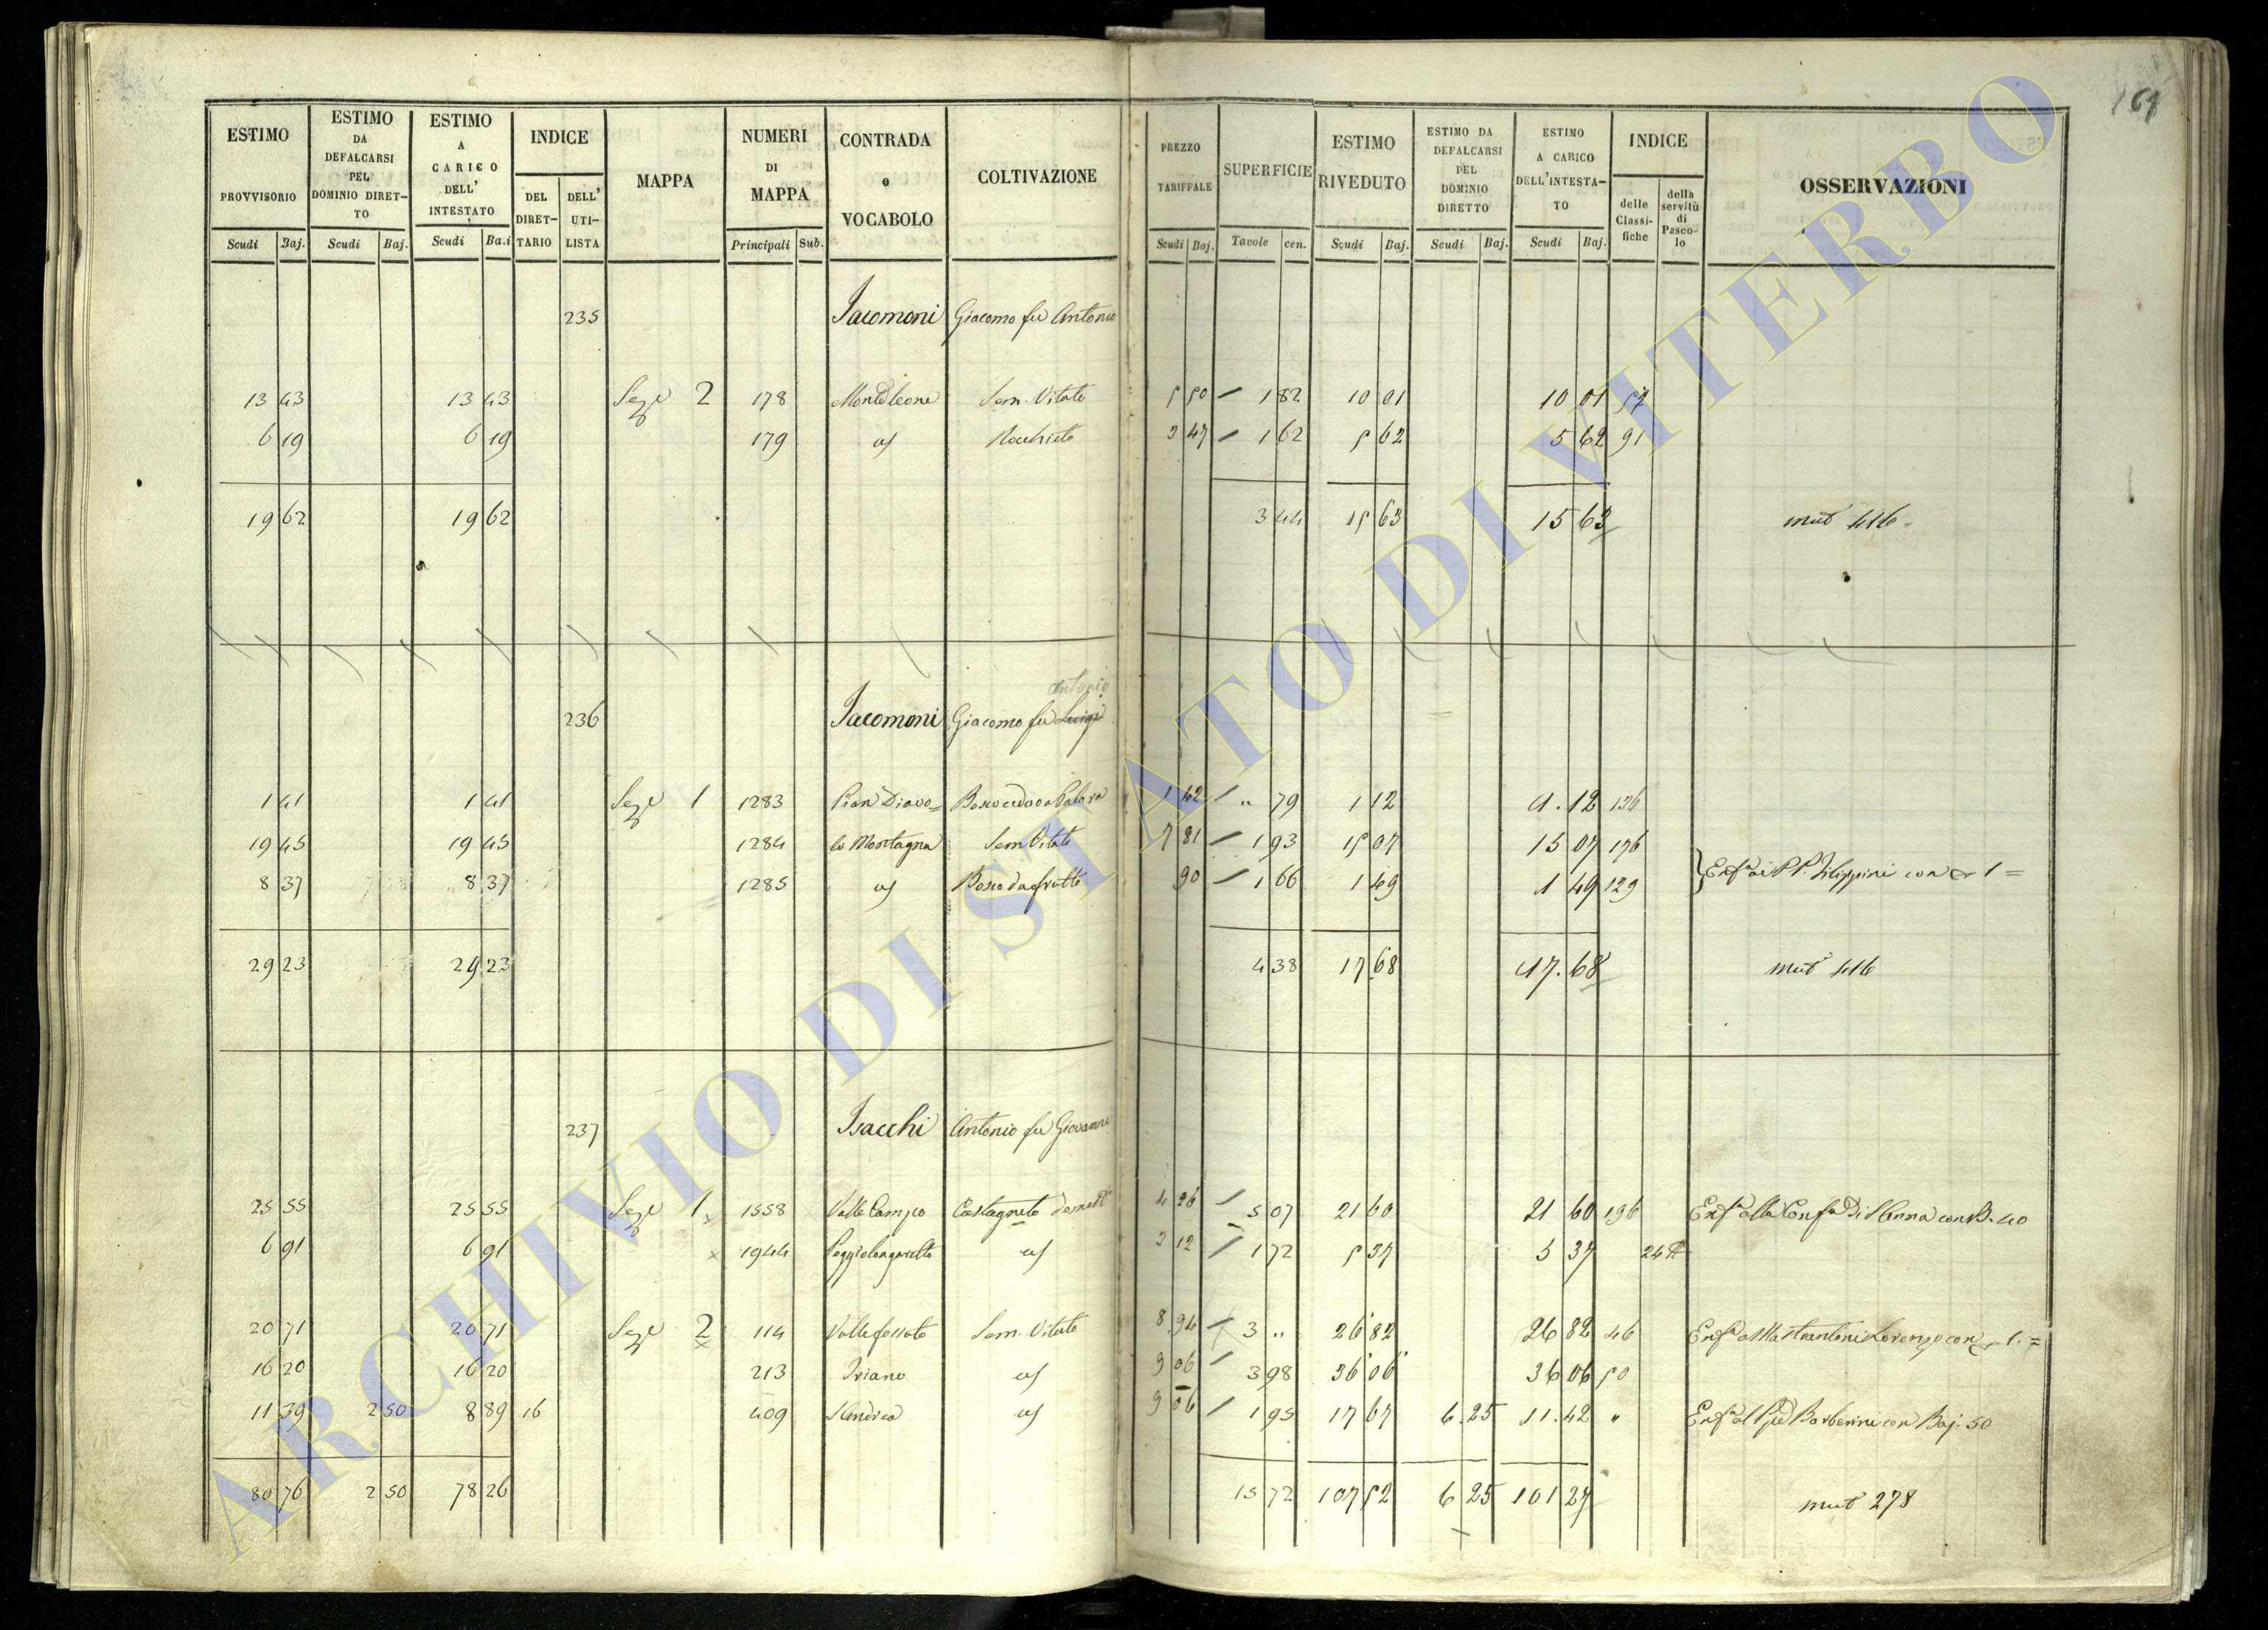 169
ESTIMO PROVVISORIO Scudi Baj.
ESTIMO DA DEFALCARSI PEL DOMINIO DIRETTO Scudi Baj.
ESTIMO A CARICO DELL' INTESTATO Scudi Ba.i
INDICE DEL DIRETTARIO DELL' UTILISTA
MAPPA
NUMERI DI MAPPA Principali Sub.
CONTRADA o VOCABOLO
COLTIVAZIONE
PREZZO TARIFFALE Scudi Baj.
SUPERFICIE Tavole cen.
ESTIMO RIVEDUTO Scudi Baj.
ESTIMO DA DEFALCARSI PEL DOMINIO DIRETTO Scudi Baj.
ESTIMO A CARICO DELL'INTESTATO Scudi Baj.
INDICE delle Classifiche della servitù di Pascolo
OSSERVAZIONI
235 Jacomoni Giacomo fu Antonio
13 43 13 43 Seze 2 178 Monteleone Sem. Vitato 5 50 1 82 10 01 10 01 57
6 19 6 19 179 id Nocchieto 3 47 1 62 5 62 5 62 91
19 62 19 62 3 44 15 63 15 63 mut 416
antonio
236 Jacomoni Giacomo fu Luigi
1 41 1 41 Seze 1 1283 Pian Diavo= Bosco ceduo a Palina 1 42 " 79 1 12 1.12 136
19 45 19 45 1284 la Montagna Sem Vitato 7 81 1 93 15 07 15 07 176
8 37 8 37 1285 id Bosco da frutto 90 1 66 1 49 1 49 129 Enfa ai PP. Filippini con 1=
29 23 29 23 4 38 17 68 17.68 mut 416
237 Isacchi Antonio fu Giovanni
25 55 25 55 Seze 1 1558 Valle Campo Castagneto domest 4 26 5 07 21 60 21 60 196 Enfa alla Confa di S Anna con B. 40
6 91 6 91 1944 Poggiolongarello id 3 12 1 72 5 37 5 37 244
20 71 20 71 Seze 2 114 Valle fossato Sem. Vitato 8 94 3 " 26 82 26 82 46 Enfa a Mastrantoni Lorenzo con 1.=
16 20 16 20 213 Triano id 9 06 3 98 36 06 36 06 50
11 39 2 50 8 89 16 409 S Andrea id 9 06 1 95 17 67 6 25 11.42 " Enfa al Barberini con Baj. 50
80 76 2 50 78 26 15 72 107 52 6 25 101 27 mut 278
ARCHIVIO DI STATO DI VITERBO